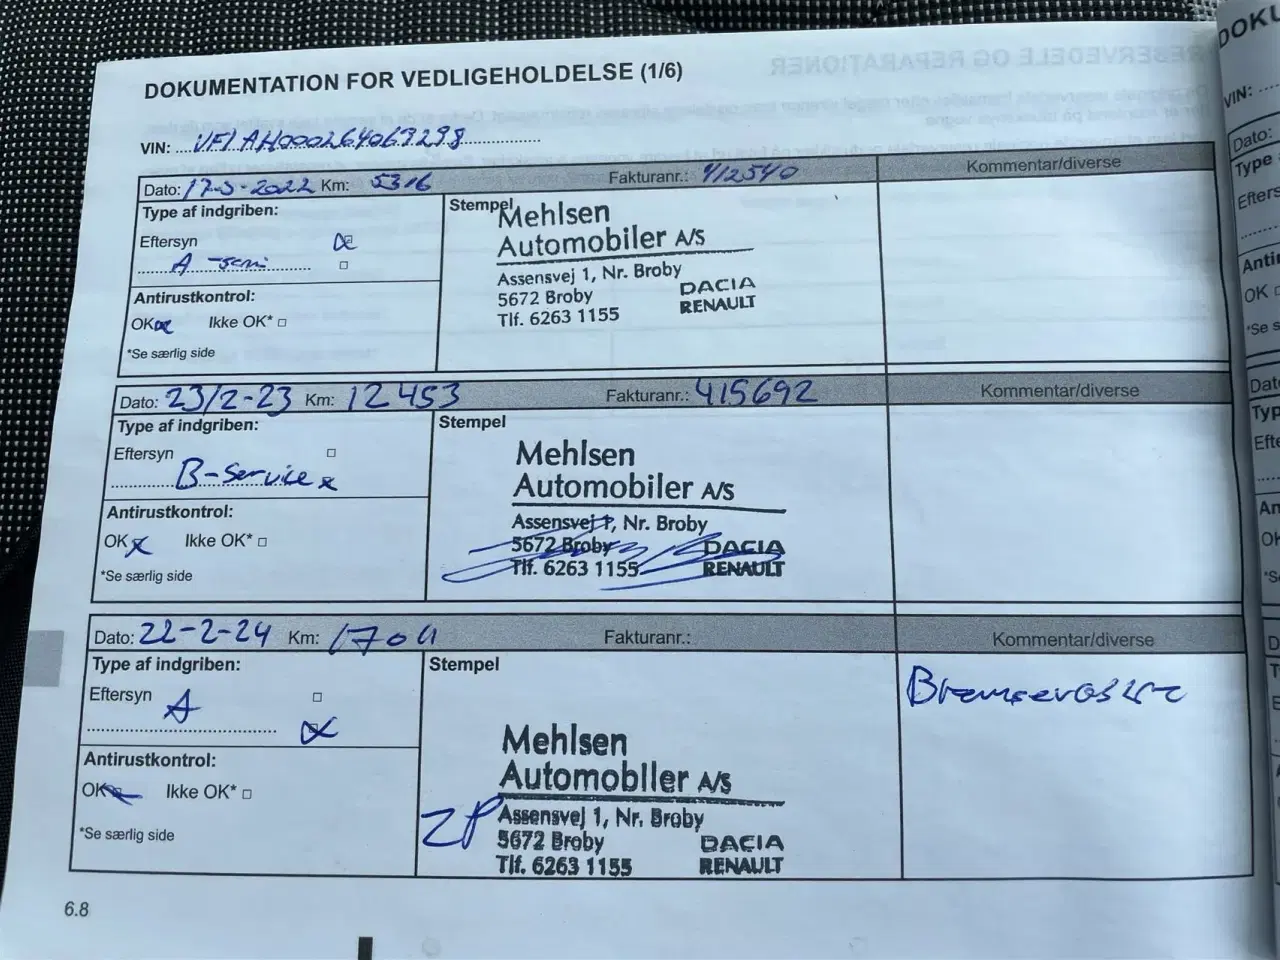 DOKUMENTATION FOR VEDLIGEHOLDELSE (1/6)
VIN: VF1AH000264069298
Dato: 17-3-2022 Km: 5316 Fakturanr.: 412540 Kommentar/diverse
Type af indgriben:
Stempel
Eftersyn
A-
Mehlsen
Automobiler A/S
Assensvej 1, Nr. Broby
5672 Broby
Tlf. 6263 1155
DACIA
RENAULT
Antirustkontrol:
OK Ikke OK*
*Se særlig side
Dato: 23/2-23 Km: 12453 Fakturanr.: 415692 Kommentar/diverse
Type af indgriben:
Stempel
Eftersyn
B-Service x
Mehlsen
Automobiler A/S
Assensvej 1, Nr. Broby
5672 Broby
Tlf. 6263 1155
DACIA
RENAULT
Antirustkontrol:
OK x Ikke OK*
*Se særlig side
Dato: 22-2-24 Km: Fakturanr.: Kommentar/diverse
Type af indgriben:
Stempel
Eftersyn
A
Bremsevæske
Mehlsen
Automobiler A/S
Assensvej 1, Nr. Broby
5672 Broby
Tlf. 6263 1155
DACIA
RENAULT
Antirustkontrol:
OK Ikke OK*
*Se særlig side
6.8
RESERVEDELE OG REPARATIONER
VIN:
Dato:
Type
OK